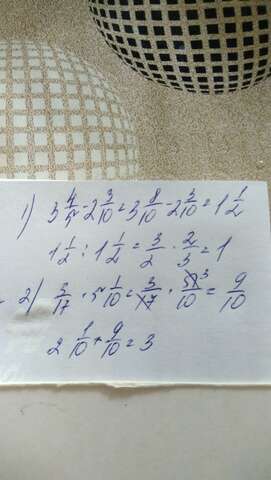 1) 3 4/5 - 2 3/10 = 3 8/10 - 2 3/10 = 1 1/2
1 1/2 : 1 1/2 = 3/2 · 2/3 = 1
2) 3/17 · 5 1/10 = 3/17 · 51 3/10 = 9/10
2 1/10 + 9/10 = 3